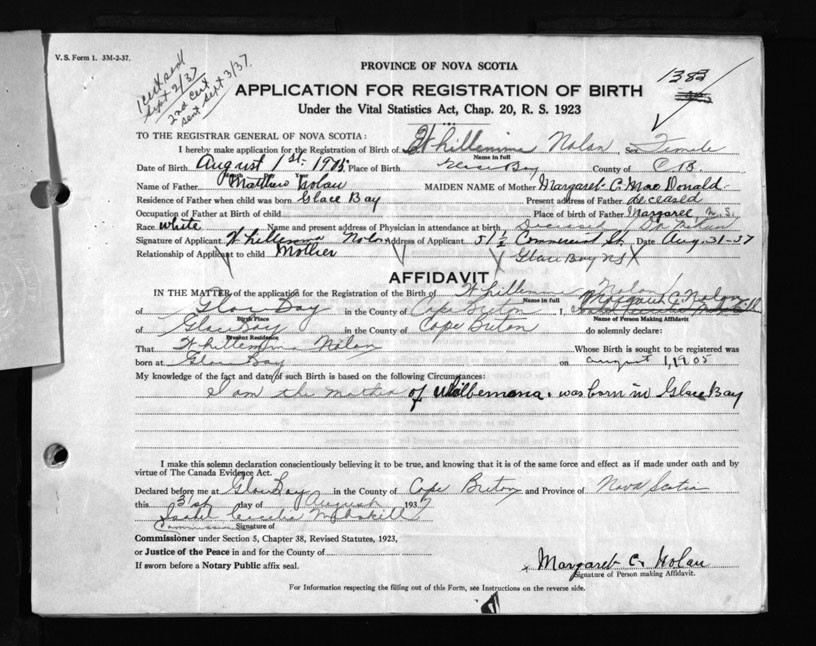 V. S. Form 1. 3M-2-37.
1 cert sent
Sept 2/37
2nd cert
sent Sept 3/37.
PROVINCE OF NOVA SCOTIA
1382
APPLICATION FOR REGISTRATION OF BIRTH
Under the Vital Statistics Act, Chap. 20, R. S. 1923
TO THE REGISTRAR GENERAL OF NOVA SCOTIA:
I hereby make application for the Registration of Birth of Whillemina Nolan Sex Female
Name in full
Date of Birth August 1st. 1905 Place of Birth Glace Bay County of C. B.
Name of Father Matthew Nolan MAIDEN NAME of Mother Margaret C. MacDonald
Residence of Father when child was born Glace Bay Present address of Father deceased
Occupation of Father at Birth of child Place of birth of Father Margaree, N. S.
Race White Name and present address of Physician in attendance at birth Dr.
Signature of Applicant Whillemina Nolan Address of Applicant 51½ Commercial St. Date Aug. 31-37
Relationship of Applicant to child Mother Glace Bay NS
AFFIDAVIT
IN THE MATTER of the application for the Registration of the Birth of Whillemina Nolan
Name in full
of Glace Bay in the County of Cape Breton I, Margaret C. Nolan
Birth Place Name of Person Making Affidavit
of Glace Bay in the County of Cape Breton do solemnly declare:
Present Residence
That Whillemina Nolan Whose Birth is sought to be registered was
born at Glace Bay on August 1, 1905
My knowledge of the fact and date of such Birth is based on the following Circumstances:
I am the mother of was born in Glace Bay
I make this solemn declaration conscientiously believing it to be true, and knowing that it is of the same force and effect as if made under oath and by
virtue of The Canada Evidence Act.
Declared before me at Glace Bay in the County of Cape Breton and Province of Nova Scotia
this 31st day of August 1937
Isabel Cecelia
Commissioner Signature of
Commissioner under Section 5, Chapter 38, Revised Statutes, 1923,
or Justice of the Peace in and for the County of
If sworn before a Notary Public affix seal.
x Margaret C. Nolan
Signature of Person making Affidavit.
For Information respecting the filling out of this Form, see Instructions on the reverse side.